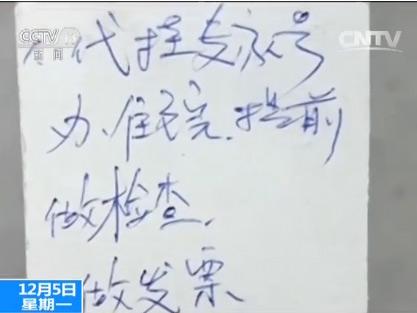 CCTV 13
新闻
CNTV
代挂专家号
办住院.提前
做检查,
做发票
12月5日
星期一